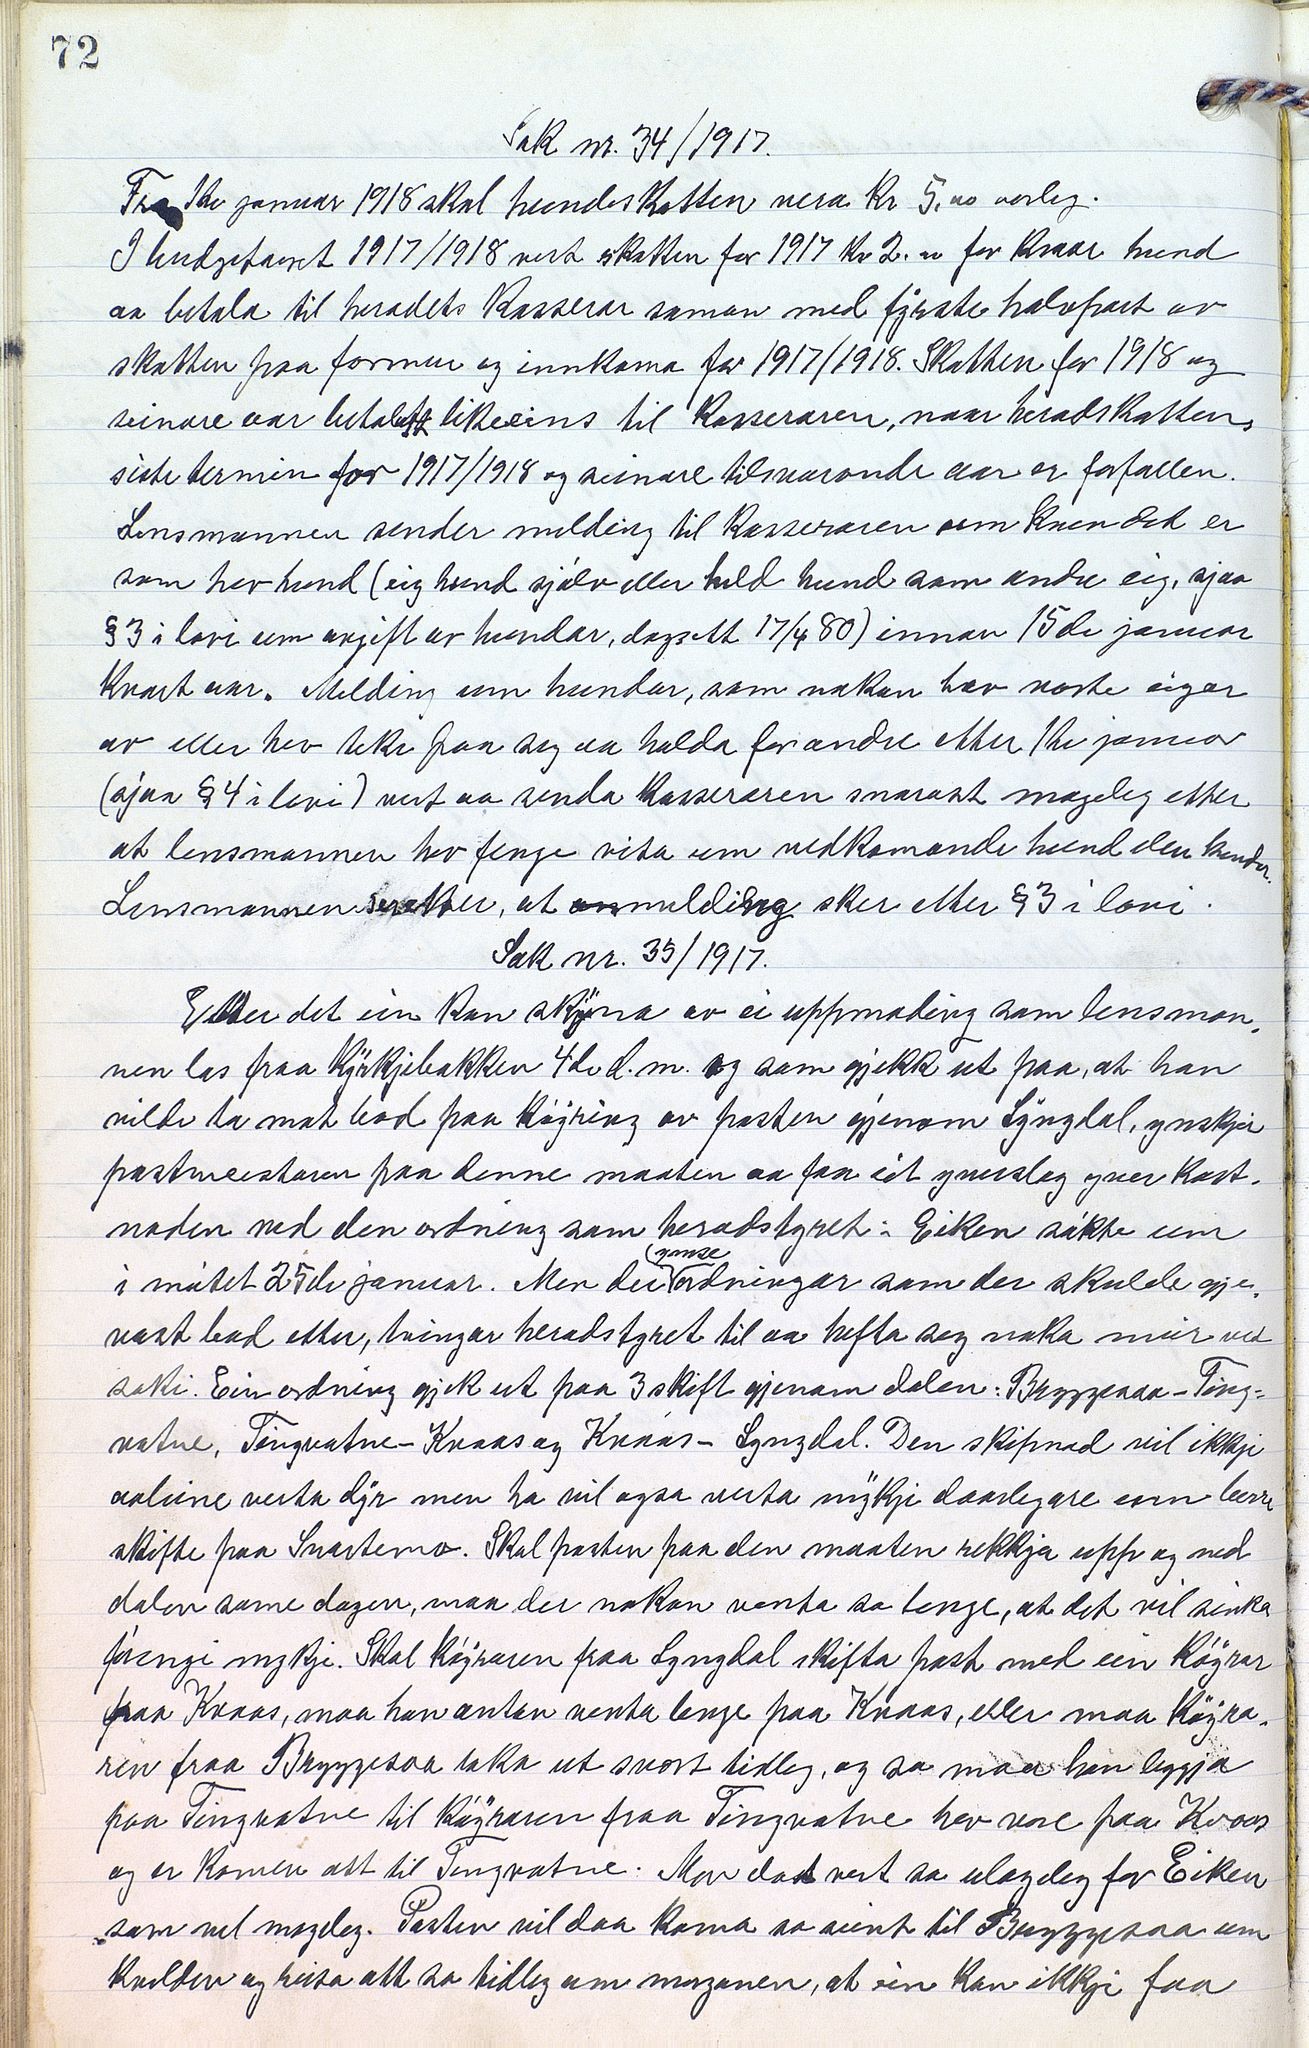 72
Sak nr. 34/1917.
Fra 1ste januar 1918 skal hundeskatten vera Kr 5.00 aarleg.
I budgetaaret 1917/1918 vert skatten for 1917 Kr 2.00 for Kvar hund
aa betala til heradets Kasserar saman med fyrste halvpart av
skatten paa formue og innkoma for 1917/1918. Skatten for 1918 og
seinare aar betalast likeeins til Kasseraren, naar heradskattens
siste termin for 1917/1918 og seinare tilsvarande aar er forfallen.
Lensmannen sender melding til Kasseraren um Kven det er
som hev hund (eig hund sjølv eller held hund som andre eig, sjaa
§3 i lovi um avgift av hundar, dagsett 17/4 80) innan 15de januar
Kvart aar. Melding um hundar, som nokon hev vorte eigar
av eller hev teke paa seg aa halda for andre etter 1ste januar
(sjaa §4 i lovi) vert aa senda Kasseraren snarast mogeleg etter
at lensmannen hev fenge vita um vedkomande hund eller hundar.
Lensmannen ser etter, at melding sker etter §3 i lovi.
Sak nr. 35/1917.
Etter det ein Kan skjøna av ei uppmoding som lensman-
nen las fraa Kyrkjebakken 4de d.m. og som gjekk ut paa, at han
vilde ta mot bod paa Køyring av posten gjenom Lyngdal, ynskjer
postmeisteren paa denne maaten aa faa eit yverslag yver Kost-
naden ved den ordning som heradstyret i Eiken søkte um
i møtet 25de januar. Men dei ymse ordningar som der skulde gje-
vast bod etter, tvingar heradstyret til aa hefta seg noko meir ved
saki. Ein ordning gjek ut paa 3 skift gjenom dalen: Bryggesaa - Ting-
vatne, Tingvatne - Kvaas og Kvaas - Lyngdal. Den skipnad vil ikkje
aaleine verta dyr men ha vil ogsa verta mykje daarlegare enn berre
skifte paa Snartemo. Skal posten paa den maaten rekkja upp og ned
dalen same dagen, maa der nokon venta so lenge, at det vil sinka
føringi mykje. Skal Køyraren fraa Lyngdal skifta post med ein Køyrar
fraa Kvaas, maa han anten venta lenge paa Kvaas, eller maa Køyra-
ren fraa Bryggesaa taka ut svært tidleg, og so maa han liggja
paa Tingvatne til Køyraren fraa Tingvatne hev vore paa Kvaas
og er Komen att til Tingvatne. Men daa vert so ulagleg for Eiken
som vel mogleg. Posten vil daa Koma so seint til Bryggesaa um
Kvelden og reisa att so tidleg um morgonen, at ein Kan ikkje faa